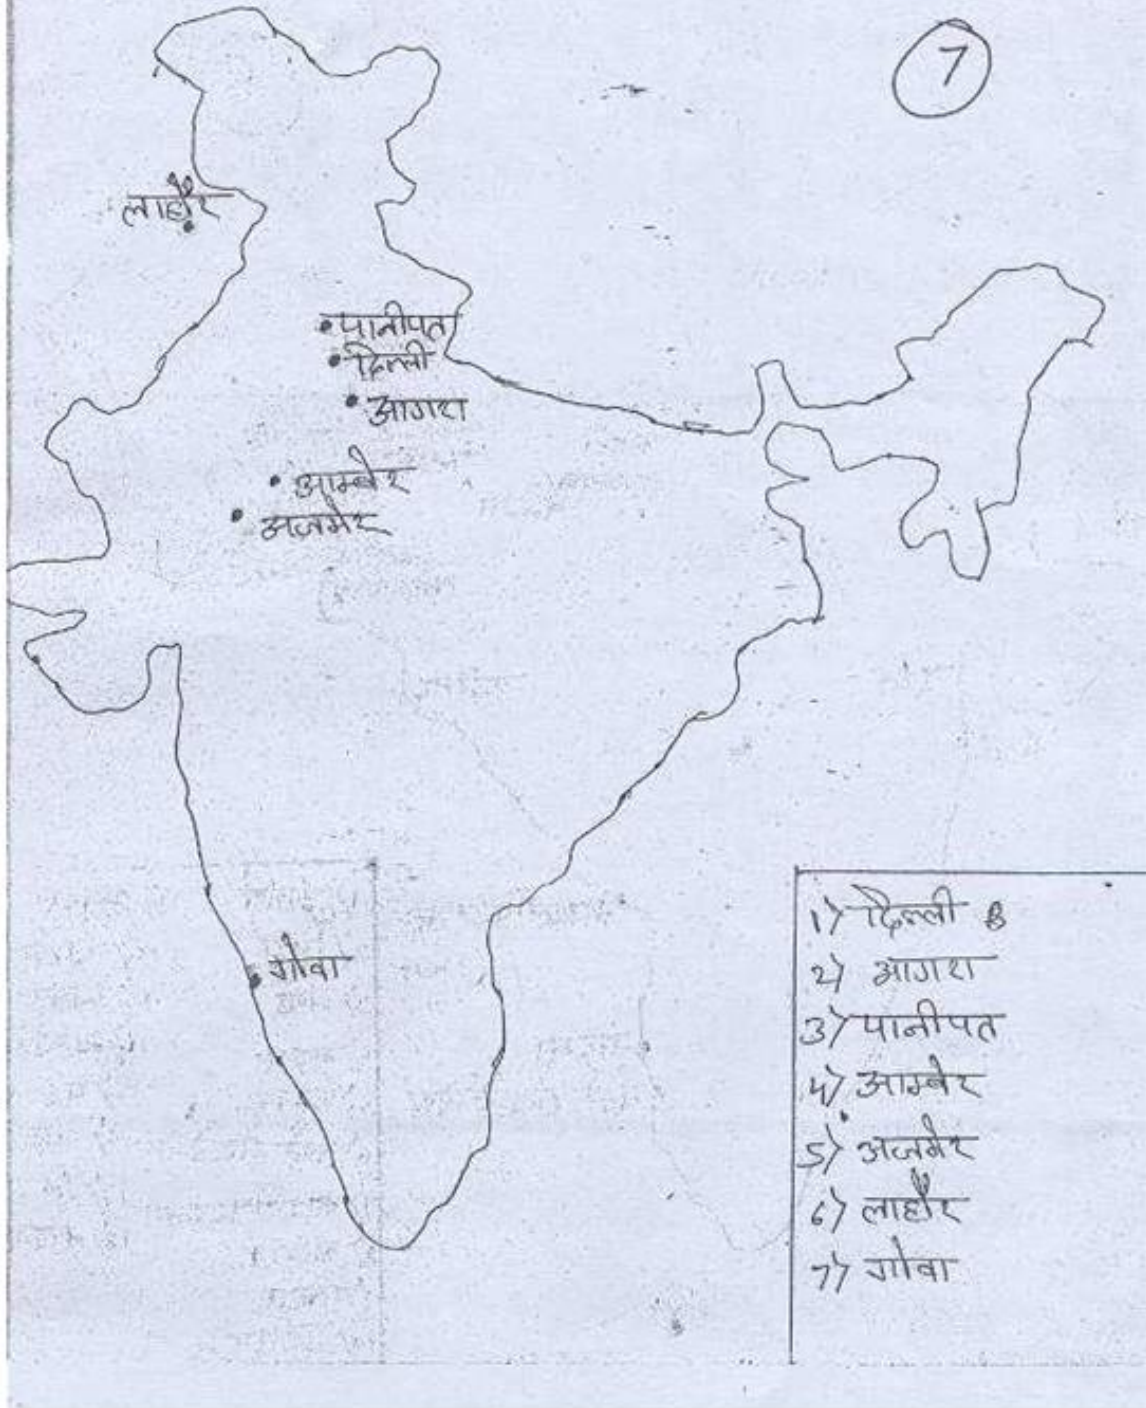 7
लाहौर
पानीपत
दिल्ली
आगरा
आम्बेर
अजमेर
गोवा
1) दिल्ली
2) आगरा
3) पानीपत
4) आम्बेर
5) अजमेर
6) लाहौर
7) गोवा